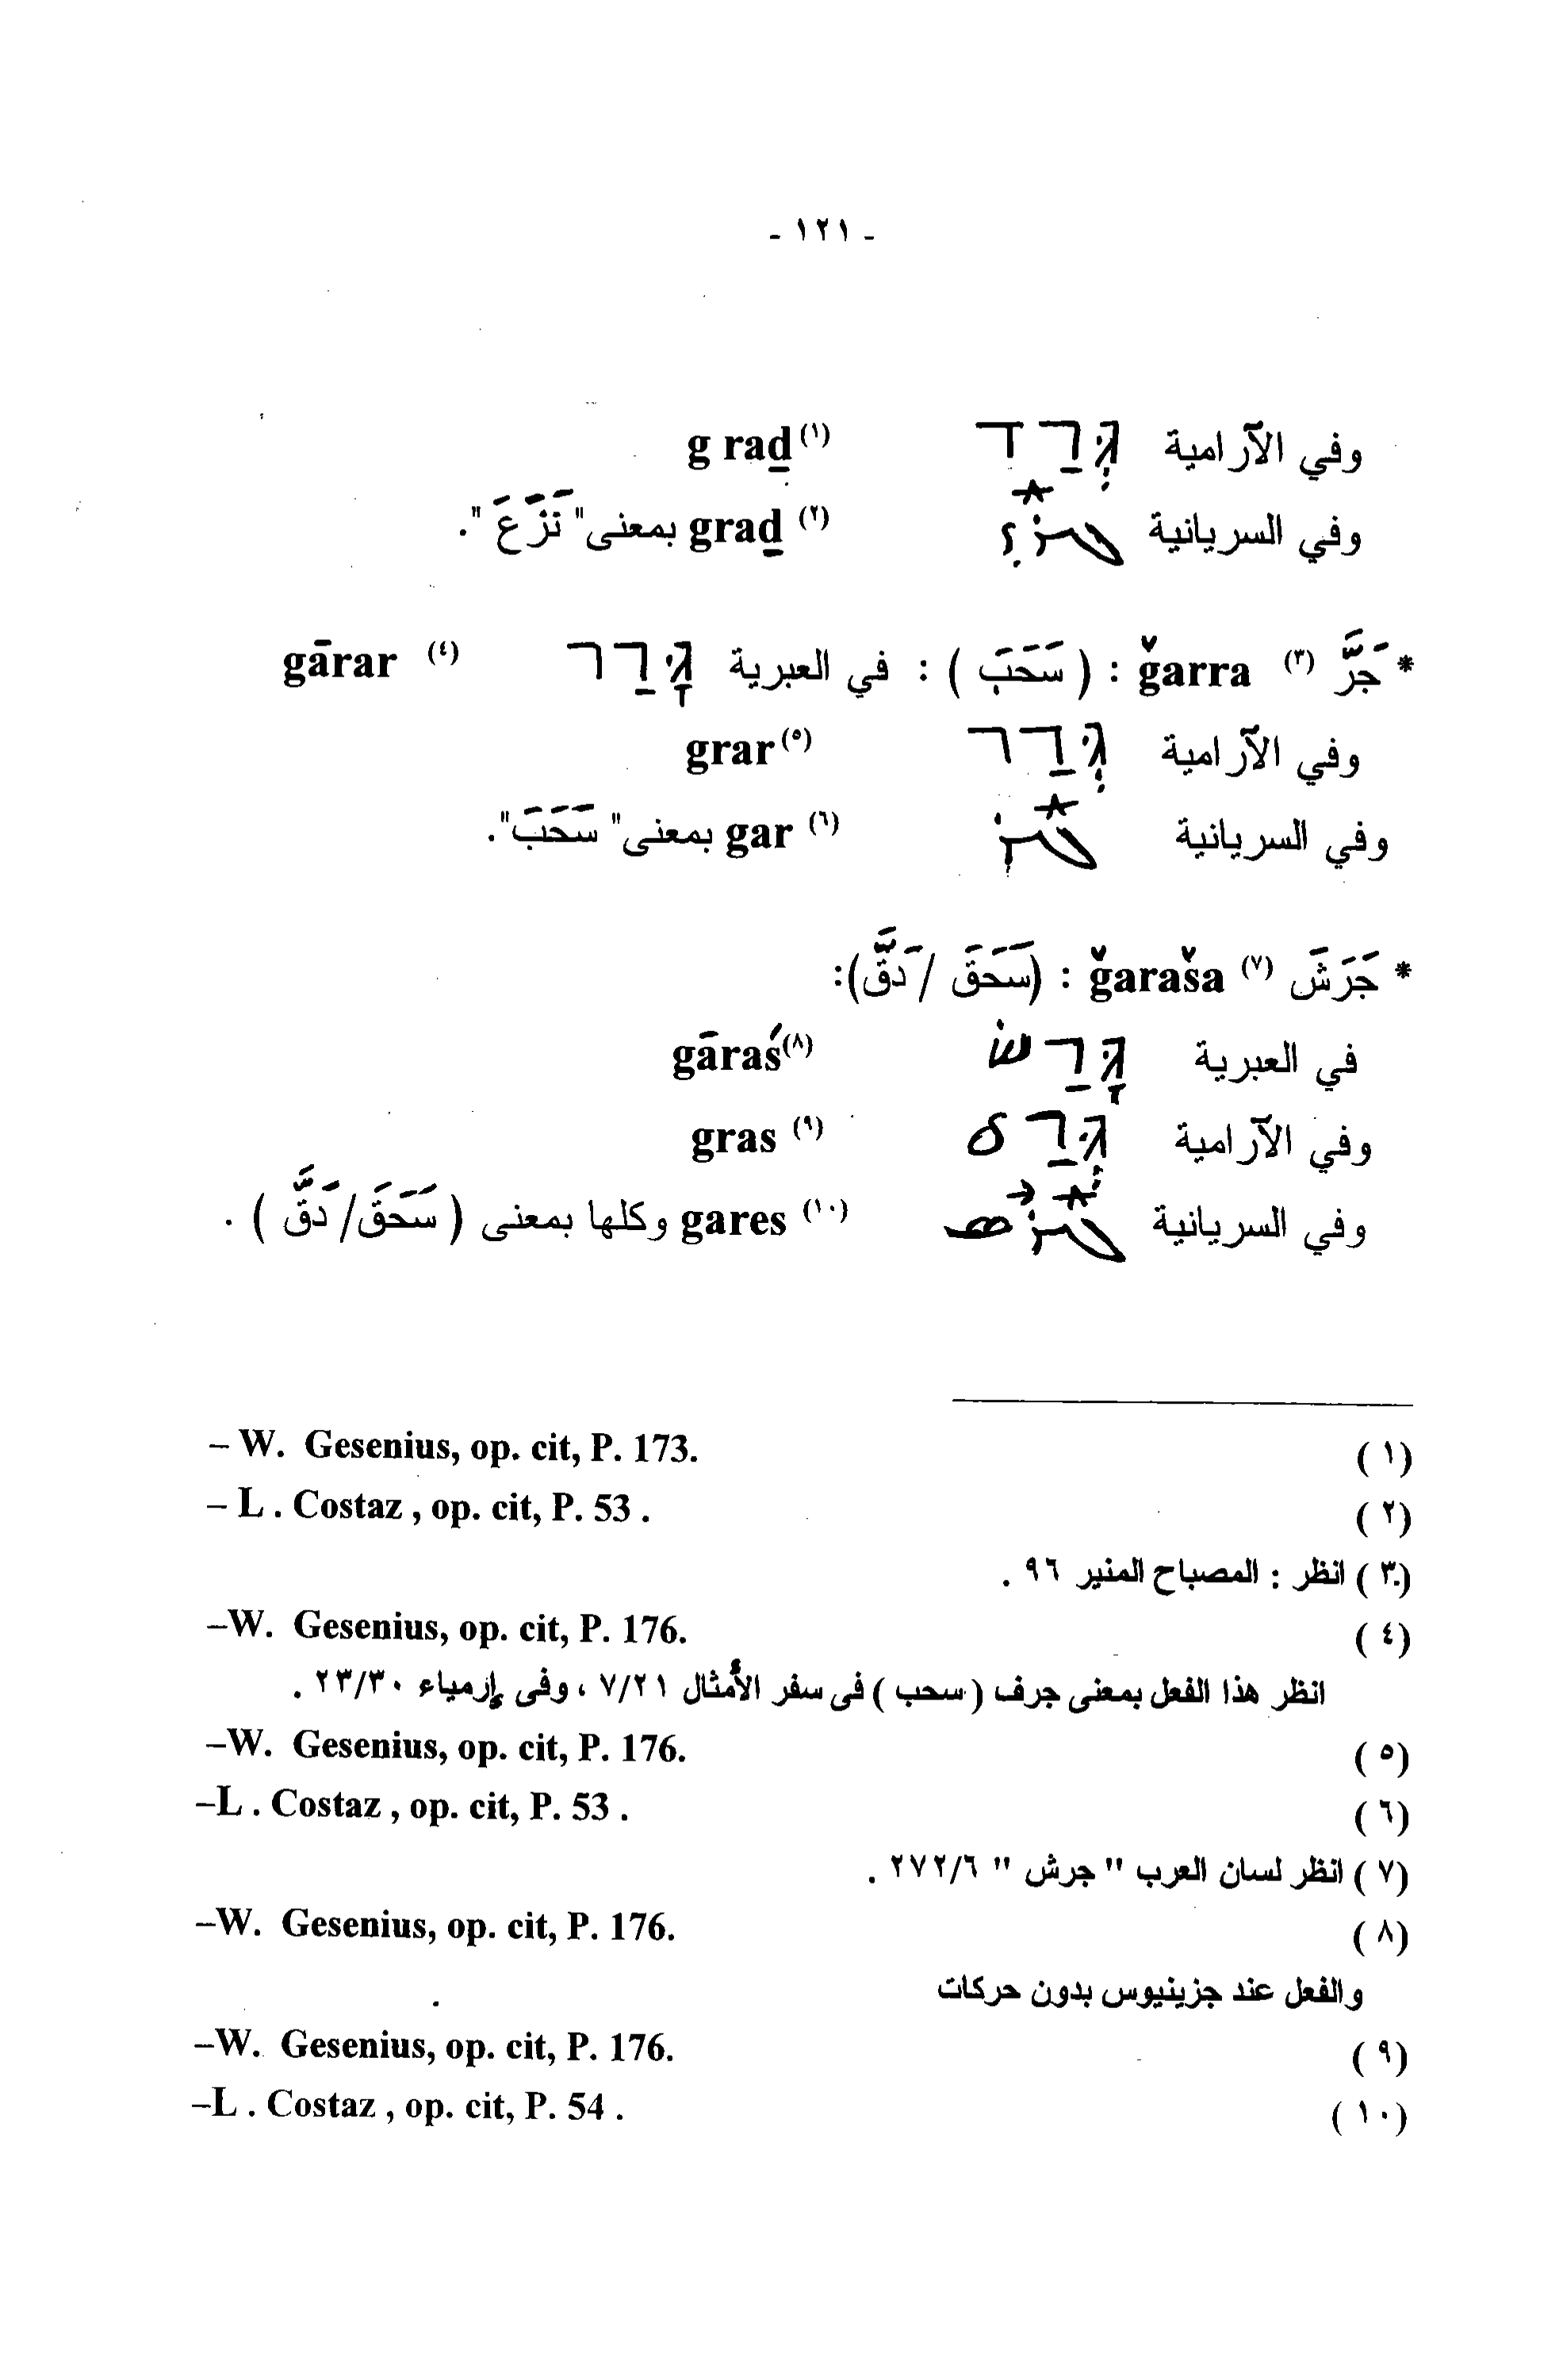 - ١٢١ -
وفي الآرامية גְּרַד g rad̲ (١)
وفي السريانية ܓܪܰܕ grad̲ (٢) بمعنى" نَزَعَ ".
* جَرَّ (٣) ǧarra : ( سَحَبَ ) : في العبرية גָּרַר gārar (٤)
وفي الآرامية גְּרַר grar (٥)
وفي السريانية ܓܰܪ gar (٦) بمعنى" سَحَبَ".
* جَرَشَ (٧) ǧaraša : (سَحَقَ / دَقَّ):
في العبرية גָּרַשׂ gāraś (٨)
وفي الآرامية גְּרַס gras (٩)
وفي السريانية ܓܰܪܶܣ gares (١٠) وكلها بمعنى ( سَحَقَ/ دَقَّ ) .
(١) – W. Gesenius, op. cit, P. 173.
(٢) – L . Costaz , op. cit, P. 53 .
(٣) انظر : المصباح المنير ٩٦ .
(٤) –W. Gesenius, op. cit, P. 176.
انظر هذا الفعل بمعنى جرف ( سحب ) فى سفر الأمثال ٧/٢١ ، وفى إرمياء ٢٣/٣٠ .
(٥) –W. Gesenius, op. cit, P. 176.
(٦) –L . Costaz , op. cit, P. 53 .
(٧) انظر لسان العرب " جرش " ٢٧٢/٦ .
(٨) –W. Gesenius, op. cit, P. 176.
والفعل عند جزينيوس بدون حركات
(٩) –W. Gesenius, op. cit, P. 176.
(١٠) –L . Costaz , op. cit, P. 54 .